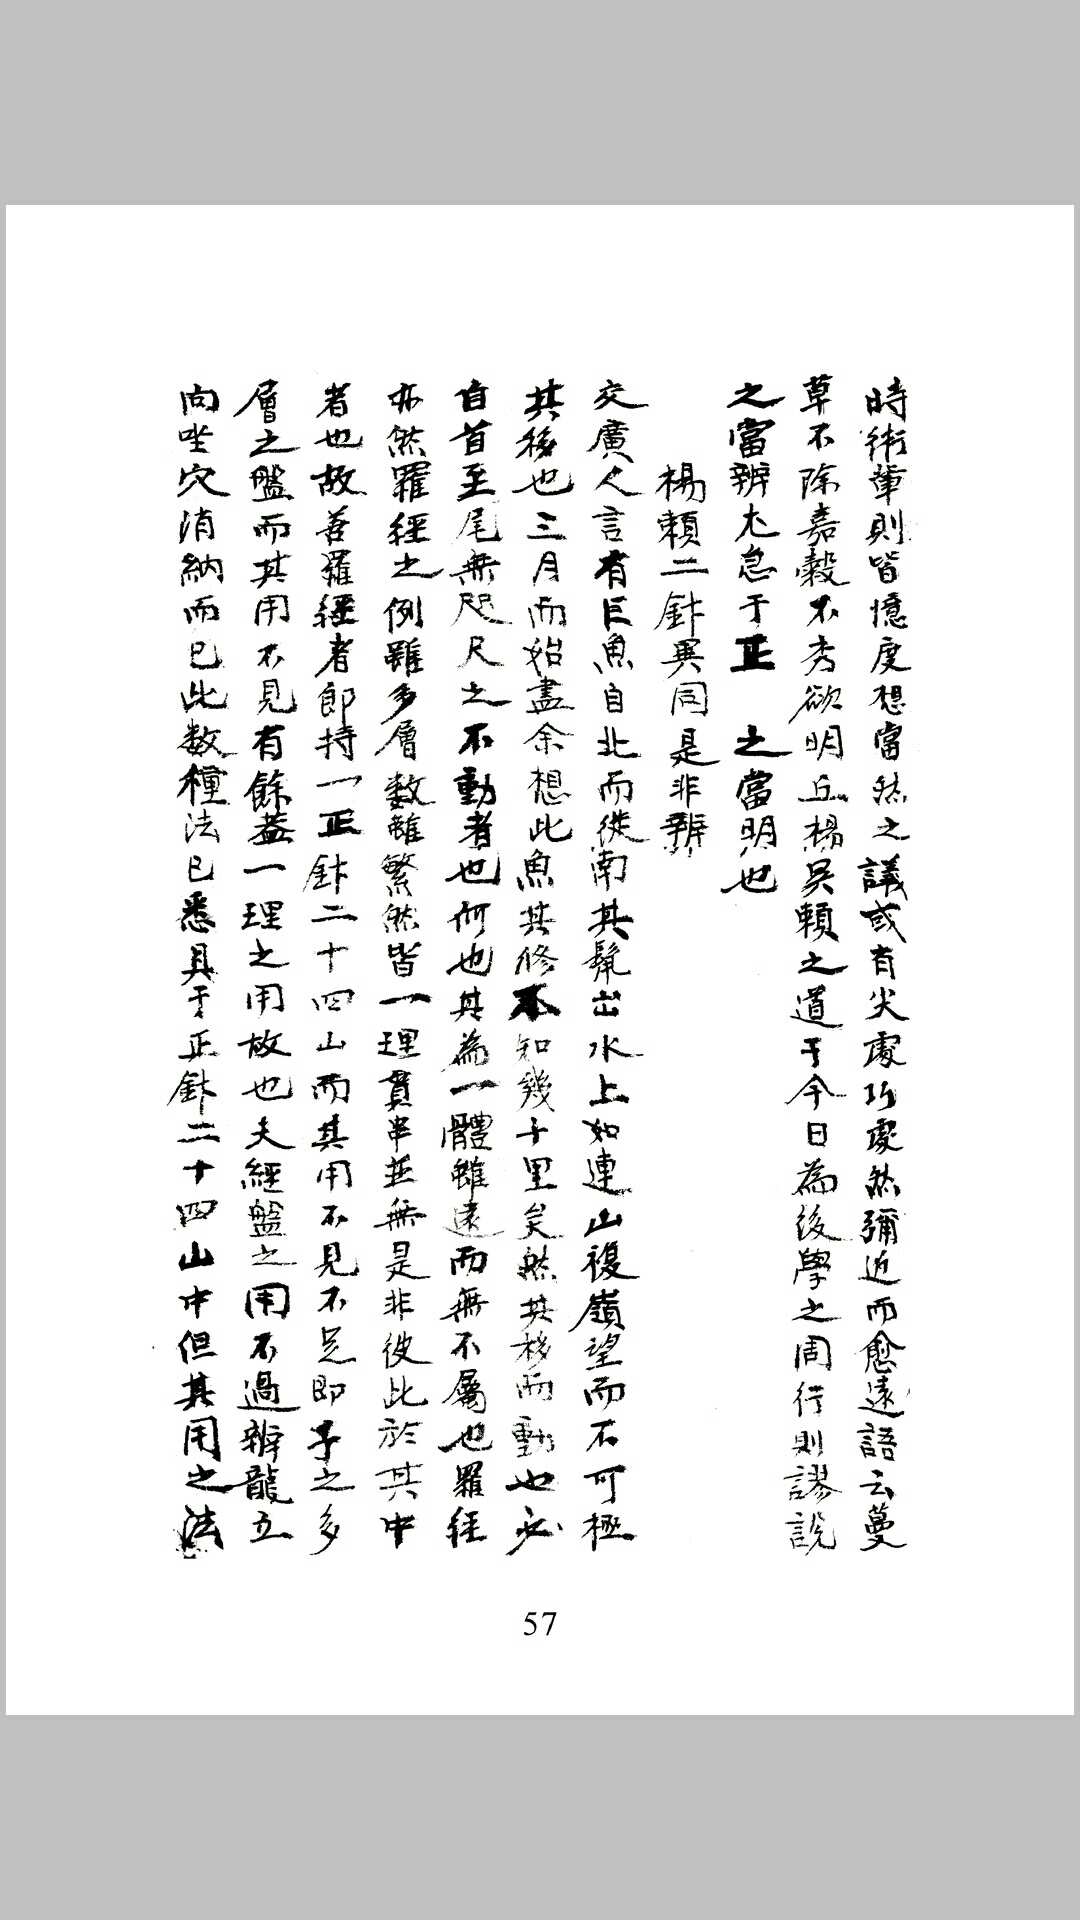 時術輩則皆憶度想當然之議或有尖處巧處然彌近而愈遠語云蔓
草不除嘉穀不秀欲明丘楊吳賴之道于今日為後學之周行則謬說
之當辨尤急于正 之當明也
楊賴二針異同是非辨
交廣人言有巨魚自北而從南其鬣出水上如連山複嶺望而不可極
其移也三月而始盡余想此魚其修不知幾千里矣然其移而動也必
自首至尾無咫尺之不動者也何也其為一體雖遠而無不屬也羅經
亦然羅經之例雖多層數雖繁然皆一理貫串並無是非彼此於其中
者也故善羅經者即持一正針二十四山而其用不見不足即予之多
層之盤而其用不見有餘蓋一理之用故也夫經盤之用不過辨龍立
向坐穴消納而已此数種法已悉具于正針二十四山中但其用之法
57